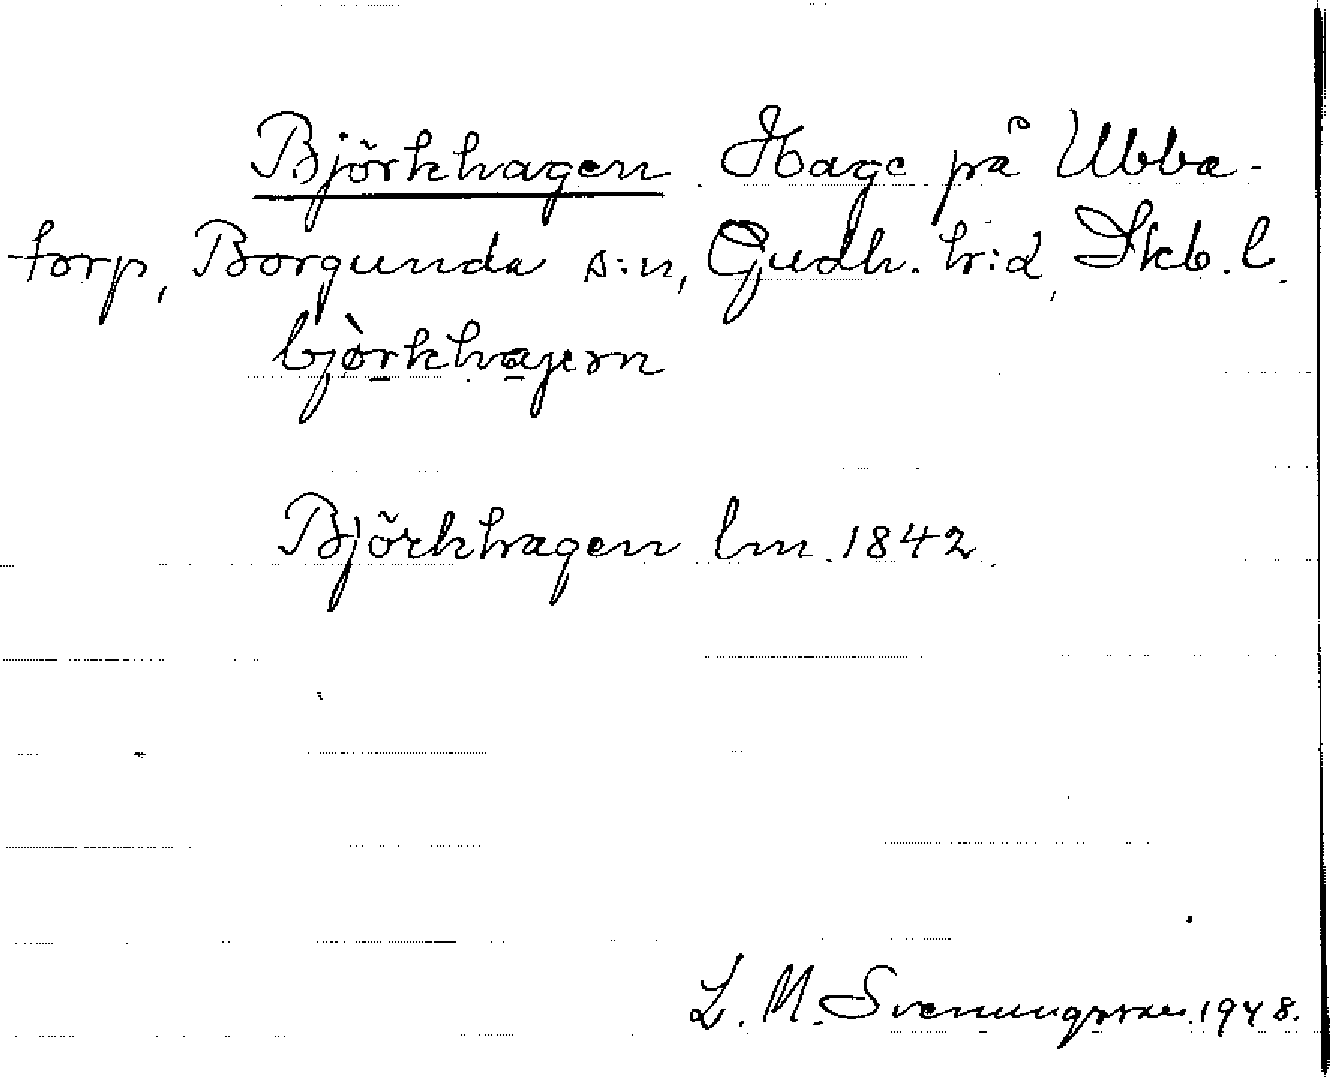 Björkhagen. Hage på Ubba-
torp, Borgunda s:n, Gudh. h:d, Skb. l.
bjòrkhagen
Björkhagen lm. 1842.
L. M. Svenungsson 1948.